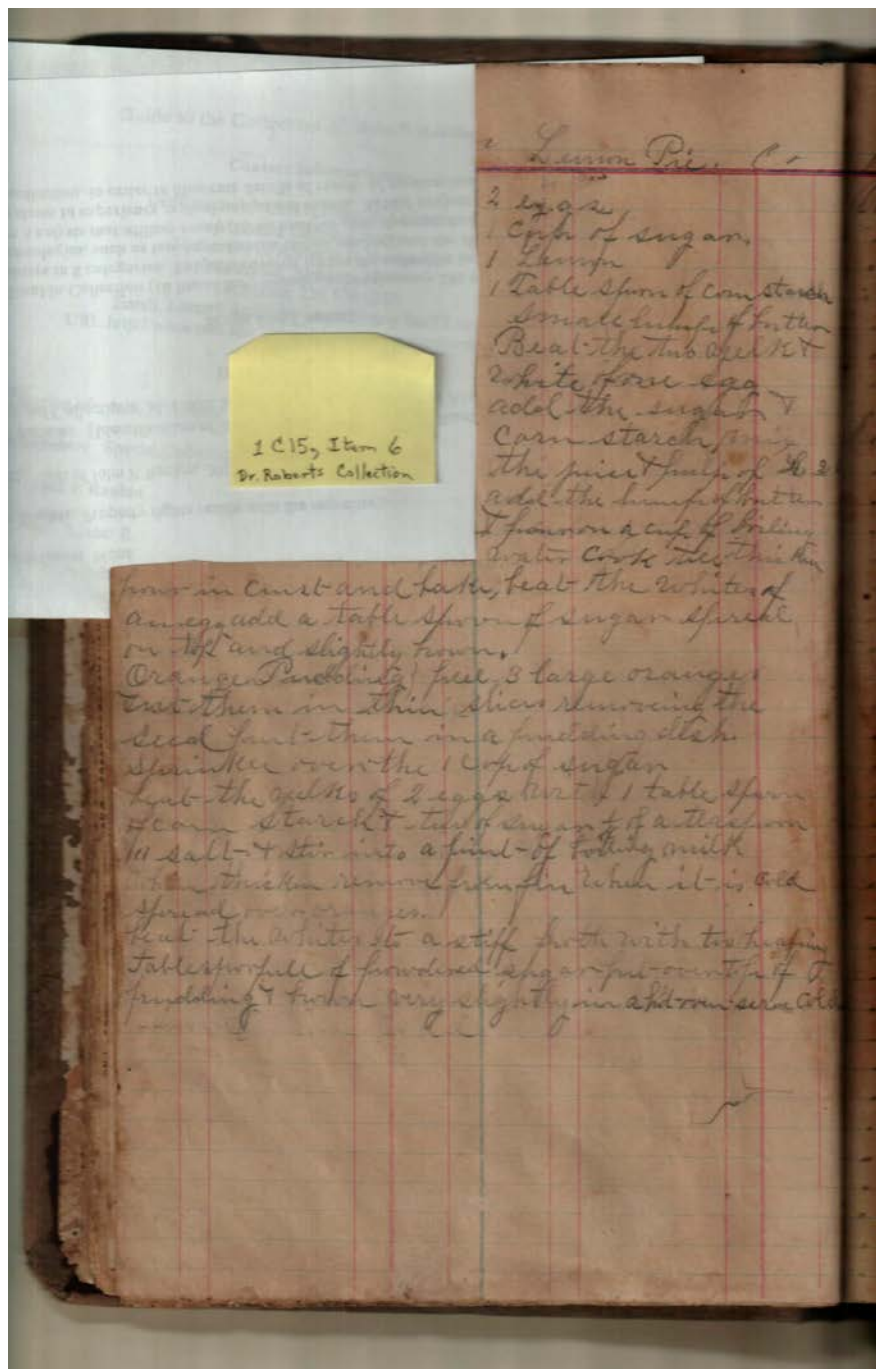 Lemon Pie
2 eggs
1 Cup of sugar.
1 Lemon
1 Table spoon of corn starch
small lump of butter
Beat the two yelks &
White of one egg
add the sugar &
Corn starch,
the juice & pulp of
add the lump butter
& pour on a cup of boiling
water Cook till thicken
pour in crust and bake, beat the whites of
an egg add a table spoon of sugar spread
on top and slightly brown.
Orange Pudding peel 3 large oranges
cut them in thin slices removing the
seed put them in a pudding dish
sprinkle over the 1 cup of sugar
beat the yelks of 2 eggs 1 table spoon
of corn starch & two of sugar of a teaspoon
salt & stir into a pint of boiling milk
when thicken remove from fire When it is cold
spread over oranges.
beat the whites to a stiff froth with two heaping
tablespoonfull of powdered sugar put over top of
pudding & brown very slightly in a hot oven serve Cold
1 C15, Item 6
Dr. Roberts Collection